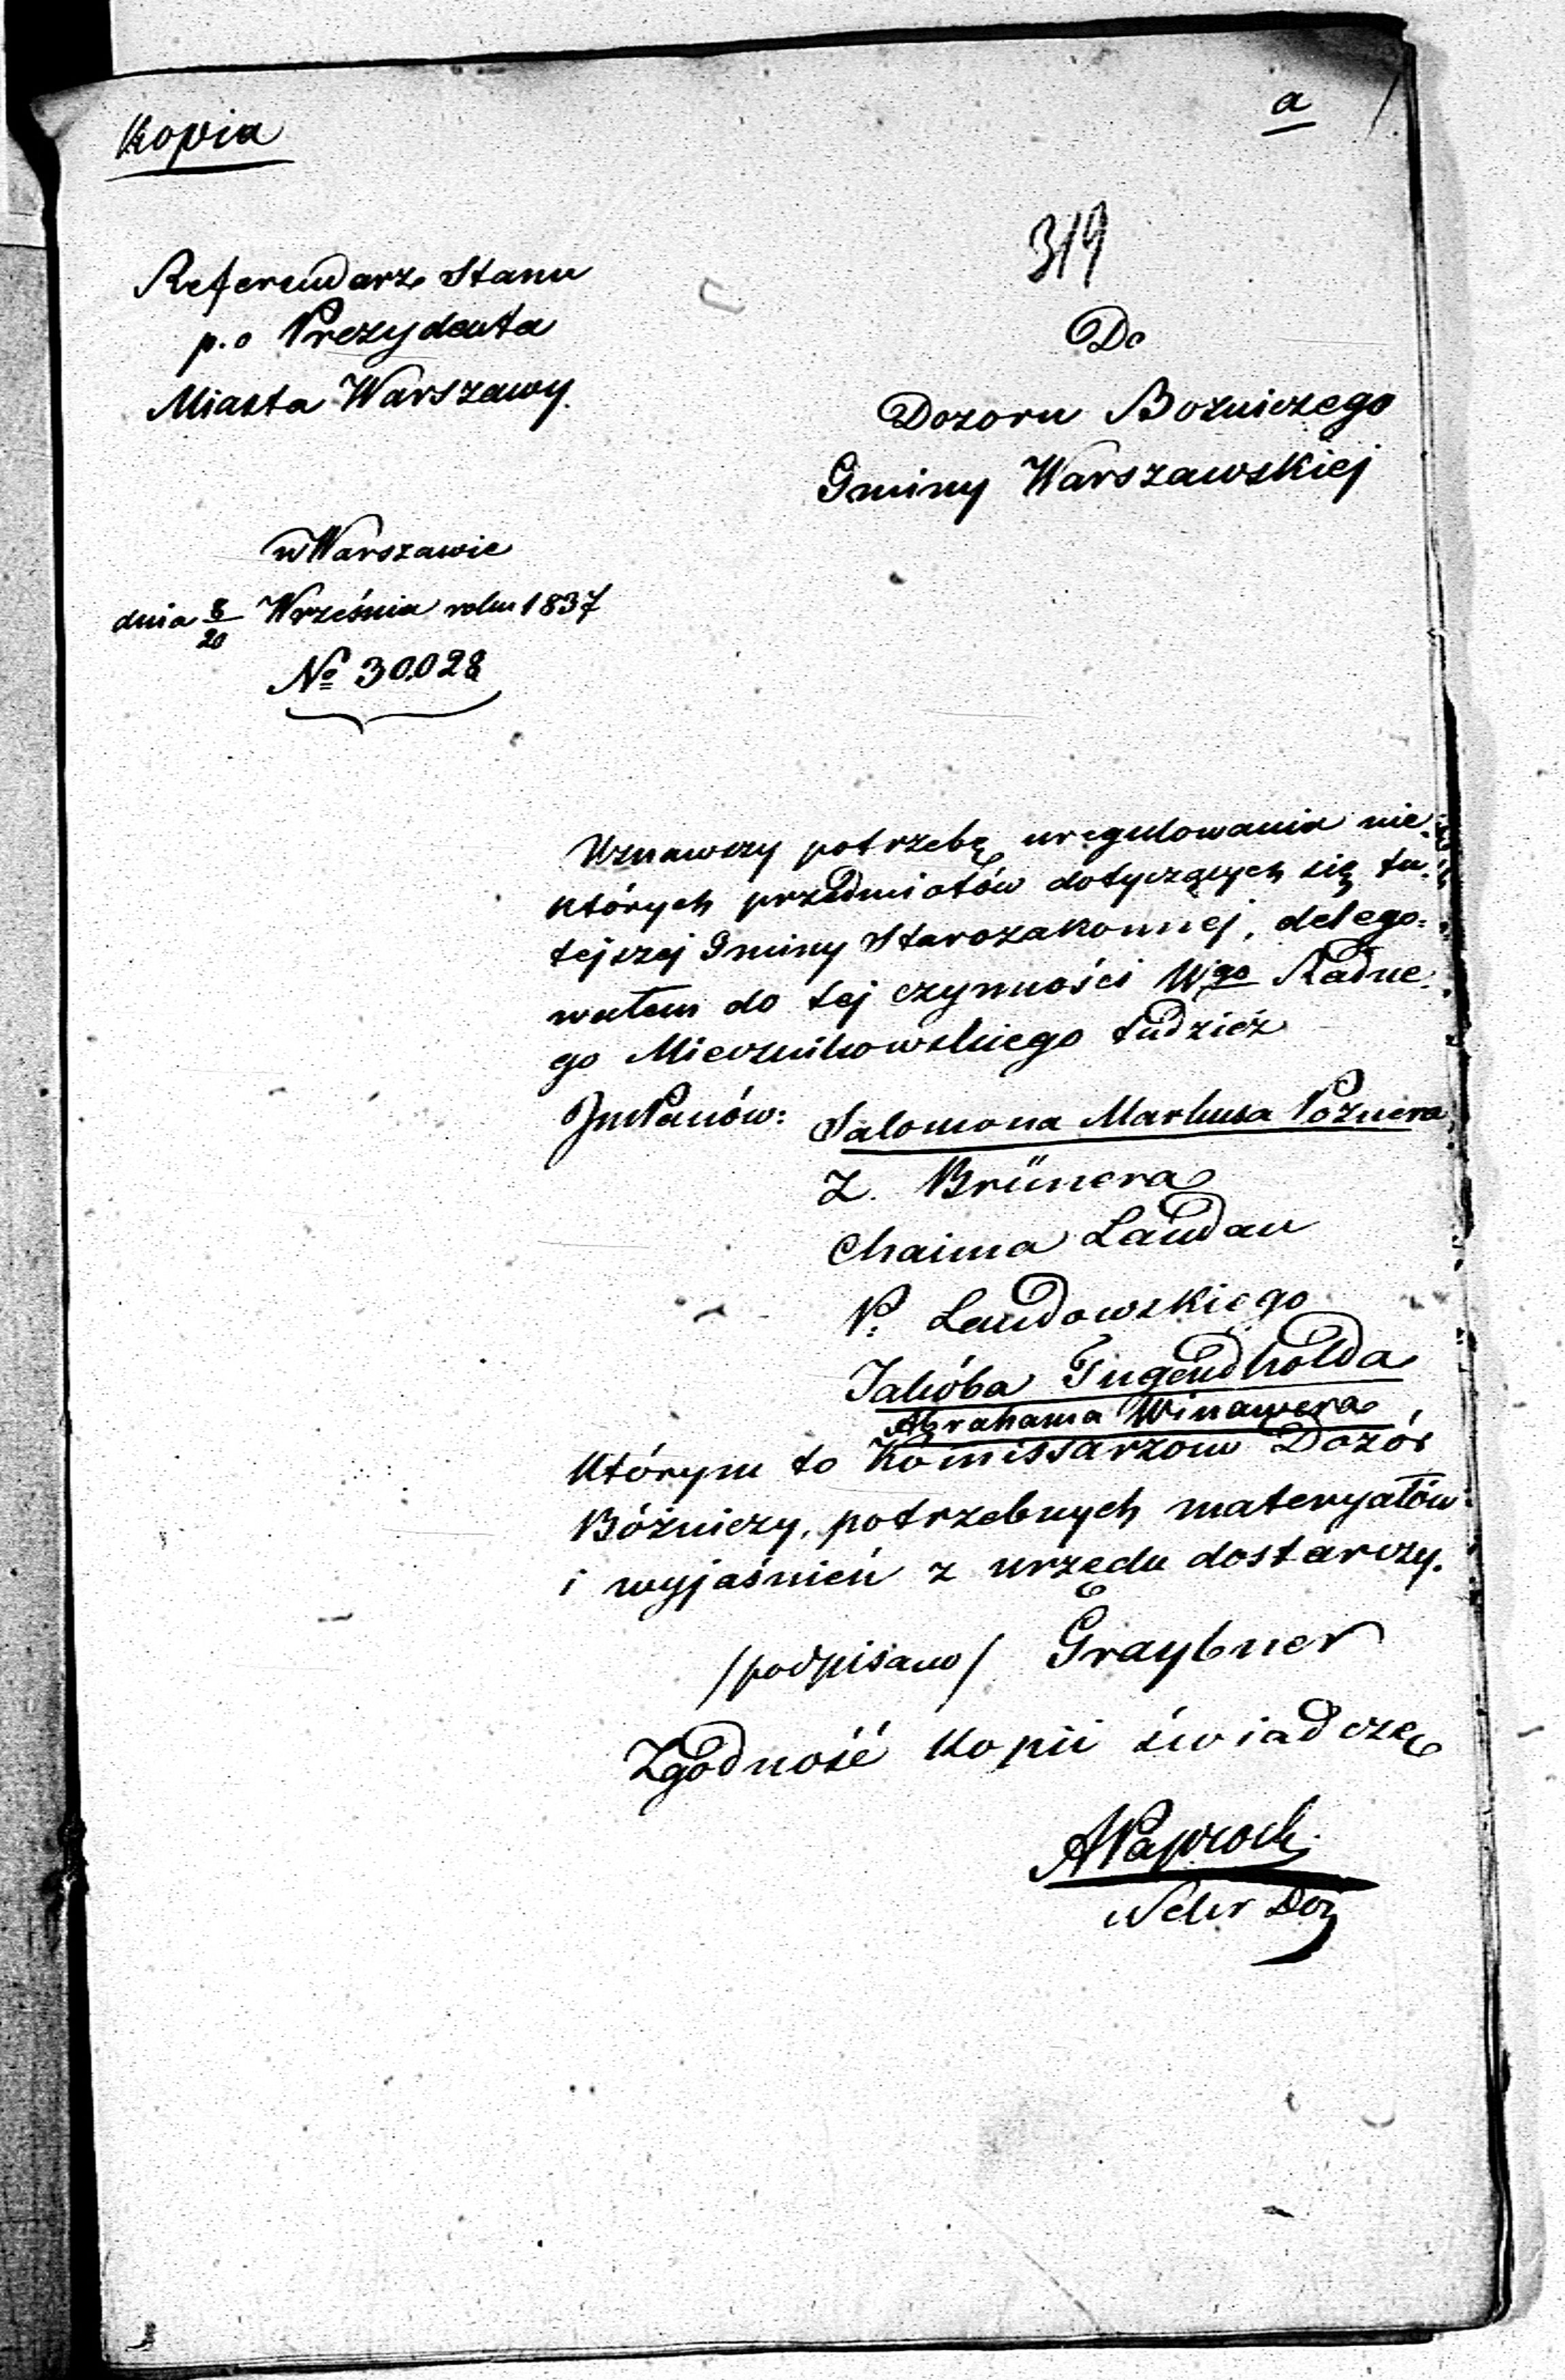 Kopia
a
319
Referendarz Stanu
p.o Prezydenta
Miasta Warszawy.
w Warszawie
dnia 8/20 Września roku 1837
№ 30,028
Do
Dozoru Bozniczego
Gminy Warszawskiej
Uznawszy potrzebę uregulowania nie-
których przedmiotów dotyczących się tu-
tejszej Gminy Starozakonnej, delego=
wałem do tej czynności Wgo Radne-
go Miecznikowskiego tudzież
JmPanów: Salomona Markusa Poznera
Z. Brünera
Chaima Landau
P. Landowskiego
Jakóba Tugendholda
Abrahama Winawera
którym to Komissarzom Dozór
Bóżniczy, potrzebnych materyałów
i wyjaśnień z urzędu dostarczy.
/podpisano/ Graybner
Zgodność kopii świadczę
APaprock
Sekr Doz